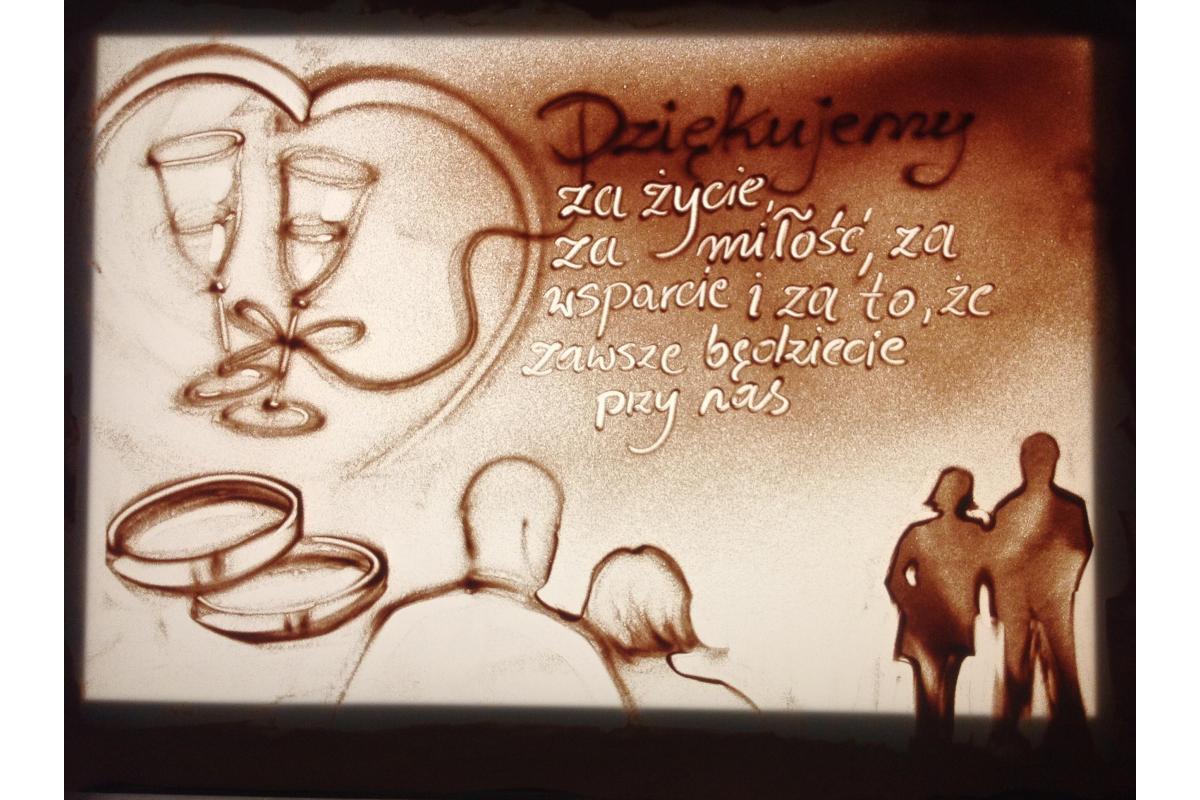 Dziękujemy
za życie,
za miłość, za
wsparcie i za to, że
zawsze będziecie
przy nas